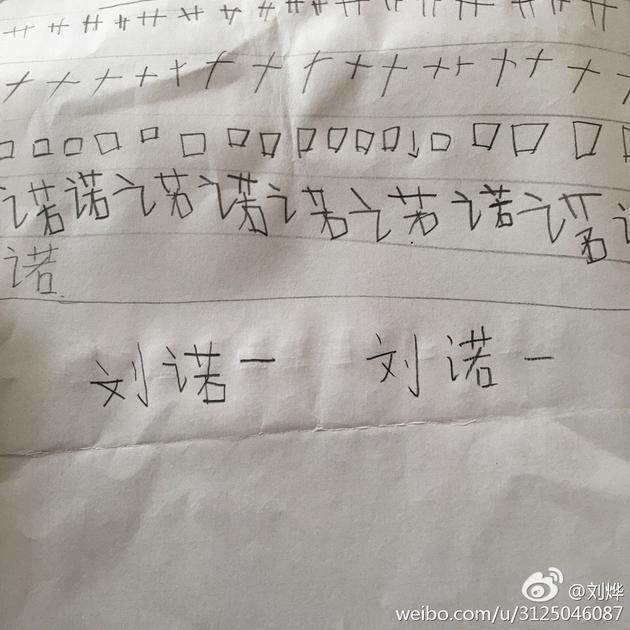 艹 艹 艹 艹 艹 艹 艹 艹 艹 艹 艹 艹 艹 艹 艹 艹 艹 艹
ナ ナ ナ ナ ナ ナ ナ ナ ナ ナ ナ ナ ナ ナ ナ ナ
口 口 口 口 口 口 口 口 口 口 口 口 口 口 口 口 口
诺 诺 诺 诺 诺 诺 诺 诺
诺
刘诺一 刘诺一
@刘烨
weibo.com/u/3125046087